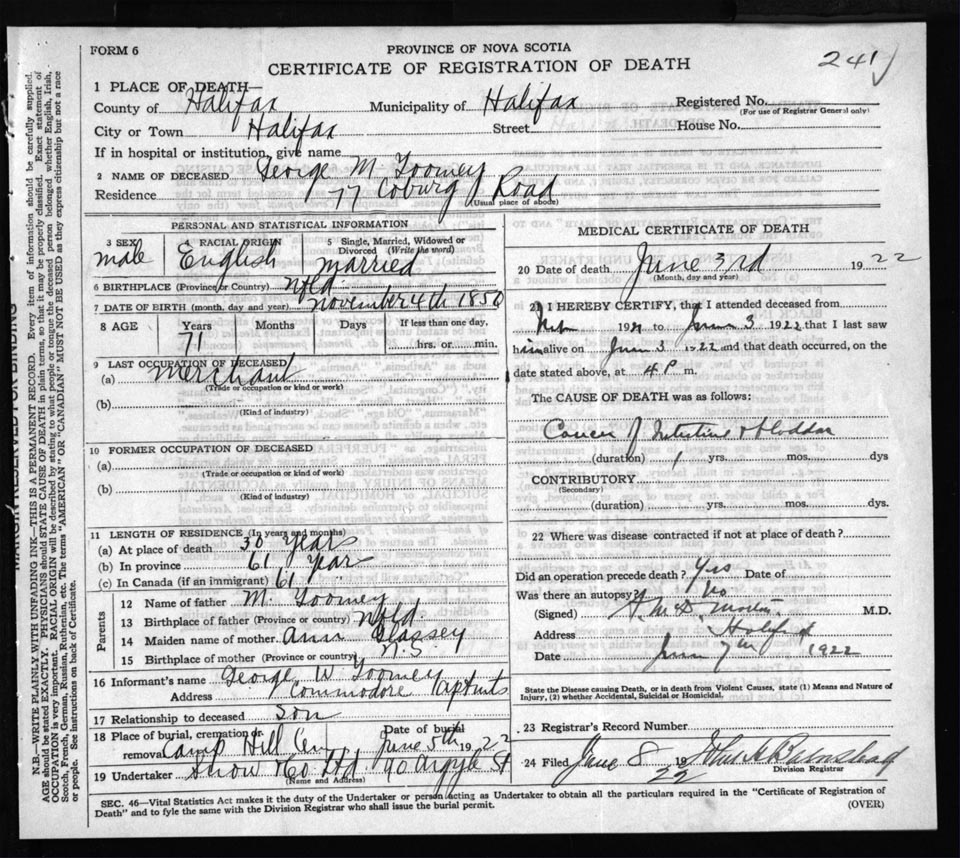 FORM 6
PROVINCE OF NOVA SCOTIA
CERTIFICATE OF REGISTRATION OF DEATH
241
1 PLACE OF DEATH—
County of Halifax Municipality of Halifax Registered No.
(For use of Registrar General only)
City or Town Halifax Street House No.
If in hospital or institution, give name
2 NAME OF DECEASED George M Toomey
Residence 77 Coburg Road
(Usual place of abode)
PERSONAL AND STATISTICAL INFORMATION
3 SEX male
4 RACIAL ORIGIN English
5 Single, Married, Widowed or Divorced (Write the word) married
6 BIRTHPLACE (Province or Country) Nfld.
7 DATE OF BIRTH (month, day and year) November 4th 1850
8 AGE Years Months Days If less than one day,
71 hrs. or min.
9 LAST OCCUPATION OF DECEASED
(a) Merchant
(Trade or occupation or kind of work)
(b)
(Kind of industry)
10 FORMER OCCUPATION OF DECEASED
(a)
(Trade or occupation or kind of work)
(b)
(Kind of industry)
11 LENGTH OF RESIDENCE (In years and months)
(a) At place of death 30 years
(b) In province 61 year
(c) In Canada (if an immigrant) 61
Parents
12 Name of father M. Toomey
13 Birthplace of father (Province or country) Nfld.
14 Maiden name of mother Ann Glassey
15 Birthplace of mother (Province or country) N.S
16 Informant's name George W Toomey
Address Commodore Aptmts
17 Relationship to deceased Son
18 Place of burial, cremation or removal Camp Hill Cem Date of burial June 5th 1922
19 Undertaker Snow & Co Ltd 90 Argyle St
(Name and Address)
MEDICAL CERTIFICATE OF DEATH
20 Date of death June 3rd 1922
(Month, day and year)
21 I HEREBY CERTIFY, that I attended deceased from
192 to June 3 1922 that I last saw
him alive on June 3 1922 and that death occurred, on the
date stated above, at 4 P m.
The CAUSE OF DEATH was as follows:
Cancer of Intestine & bladder
(duration) 1 yrs. mos. dys
CONTRIBUTORY
(Secondary)
(duration) yrs. mos. dys.
22 Where was disease contracted if not at place of death?
Did an operation precede death? Yes Date of
Was there an autopsy? No
(Signed) M.D.
Address Halifax
Date June 7th 1922
State the Disease causing Death, or in death from Violent Causes, state (1) Means and Nature of
Injury, (2) whether Accidental, Suicidal or Homicidal.
23 Registrar's Record Number
24 Filed June 8 1922
Division Registrar
SEC. 46—Vital Statistics Act makes it the duty of the Undertaker or person acting as Undertaker to obtain all the particulars required in the "Certificate of Registration of
Death" and to fyle the same with the Division Registrar who shall issue the burial permit.
(OVER)
MARGIN RESERVED FOR BINDING
N.B.—WRITE PLAINLY, WITH UNFADING INK—THIS IS A PERMANENT RECORD. Every item of information should be carefully supplied.
AGE should be stated EXACTLY. PHYSICIANS should STATE CAUSE OF DEATH in plain terms, so that it may be properly classified. Exact statement of
OCCUPATION is very important. RACIAL ORIGIN will be described by stating to what people or tongue the deceased person belonged whether English, Irish,
Scotch, French, German, Russian, Ruthenian, etc. The terms "AMERICAN" OR "CANADIAN" MUST NOT BE USED as they express citizenship but not a race
or people. See instructions on back of Certificate.